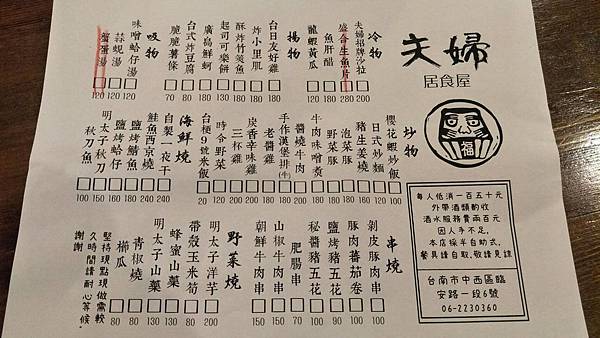 夫婦
居食屋
福
每人低消一百五十元
外帶酒類酌收
酒水服務費兩百元
因人手不足,
本店採半自助式,
餐具請自取,敬請見諒
台南市中西區臨
安路一段6號
06-2230360
冷物
夫婦招牌沙拉 200
盛合生魚片 280
魚肝醋 180
龍蝦黃瓜 120
揚物
台日友好雞 120
炸小里肌
酥炸竹筴魚
起司可樂餅 130
廣島鮮蚵 180
台式炸豆腐 80
脆脆薯條 70
吸物
味噌蛤仔湯 120
蒜蜆湯 120
蟹蛋湯 120
炒物
櫻花蝦炒飯 100
日式炒麵 100
豬生薑燒
泡菜豚
野菜豚
牛肉味噌煮
醬燒牛肉
手作漢堡排(牛)
老醬雞
炭香辛味雞
三杯雞
時令野菜 120
台梗9號米飯 20
海鮮燒
自製一夜干
鮭魚西京燒
鹽烤鯖魚
鹽烤蛤仔
明太子秋刀 150
秋刀魚 100
串燒
剝皮豚肉串
豚肉蕃茄卷
鹽烤豬五花
秘醬豬五花 100
肥腸串 70
山椒牛肉串 150
朝鮮牛肉串 150
野菜燒
明太子洋芋 200
帶殼玉米筍 80
蜂蜜山藥 130
明太子山藥 130
青椒燒 80
櫛瓜 80
堅持現點現做需較
久時間請耐心等候。
謝謝